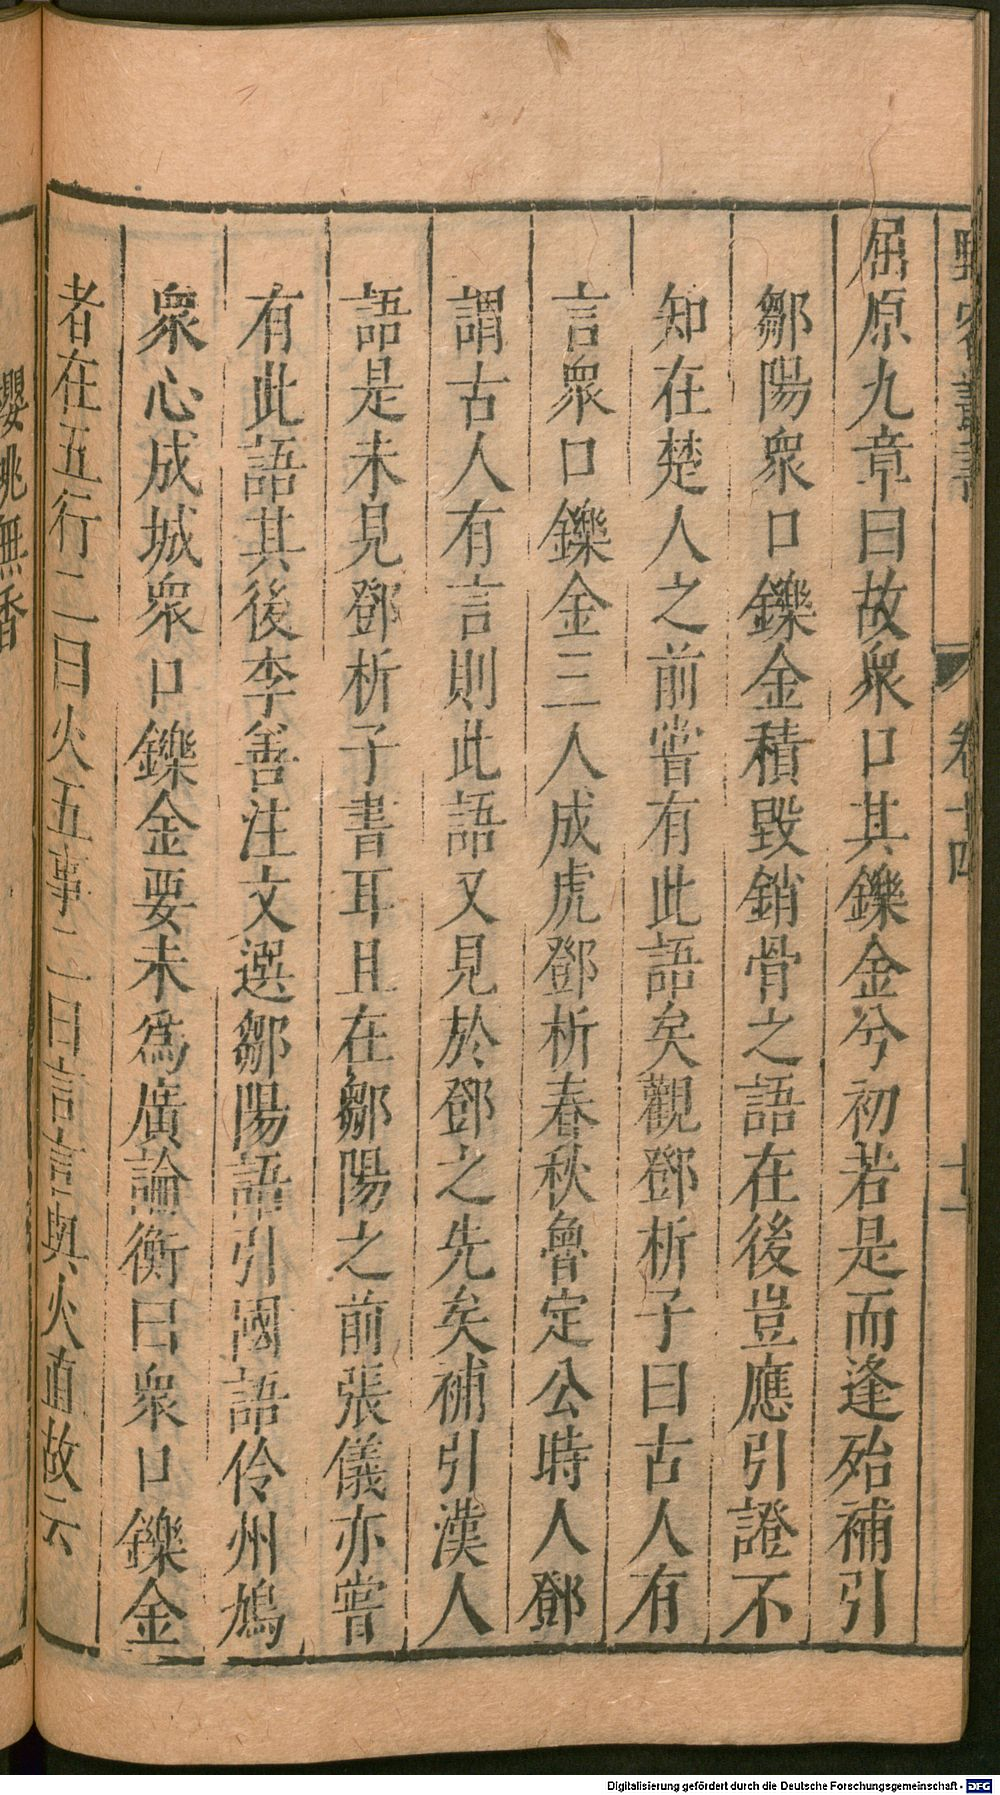 野客叢書
卷十四
十一
屈原九章曰故衆口其鑠金兮初若是而逢殆補引
鄒陽衆口鑠金積毀銷骨之語在後豈應引證不
知在楚人之前嘗有此語矣觀鄧析子曰古人有
言衆口鑠金三人成虎鄧析春秋魯定公時人鄧
謂古人有言則此語又見於鄧之先矣補引漢人
語是未見鄧析子書耳且在鄒陽之前張儀亦嘗
有此語其後李善注文選鄒陽語引國語伶州鳩
衆心成城衆口鑠金要未爲廣論衡曰衆口鑠金
者在五行二曰火五事二曰言言與火直故云
櫻桃無香
Digitalisierung gefördert durch die Deutsche Forschungsgemeinschaft - DFG